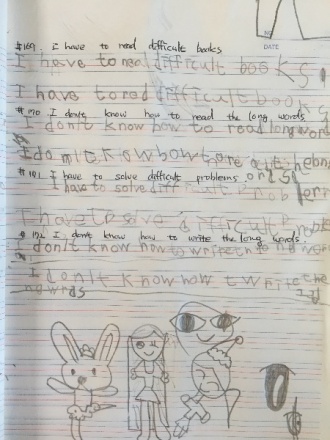 DATE
#169. I have to read difficult books
I have to read difficult books
I have to red difficult books
#170 I don't know how to read the long words.
I don't know how to read long word
#171 I have to solve difficult problems
I have to solve difficult Prob
I have t solve difficult
#172 I don't know how to write the long words.
I don't know how to write
I don't know how t write the